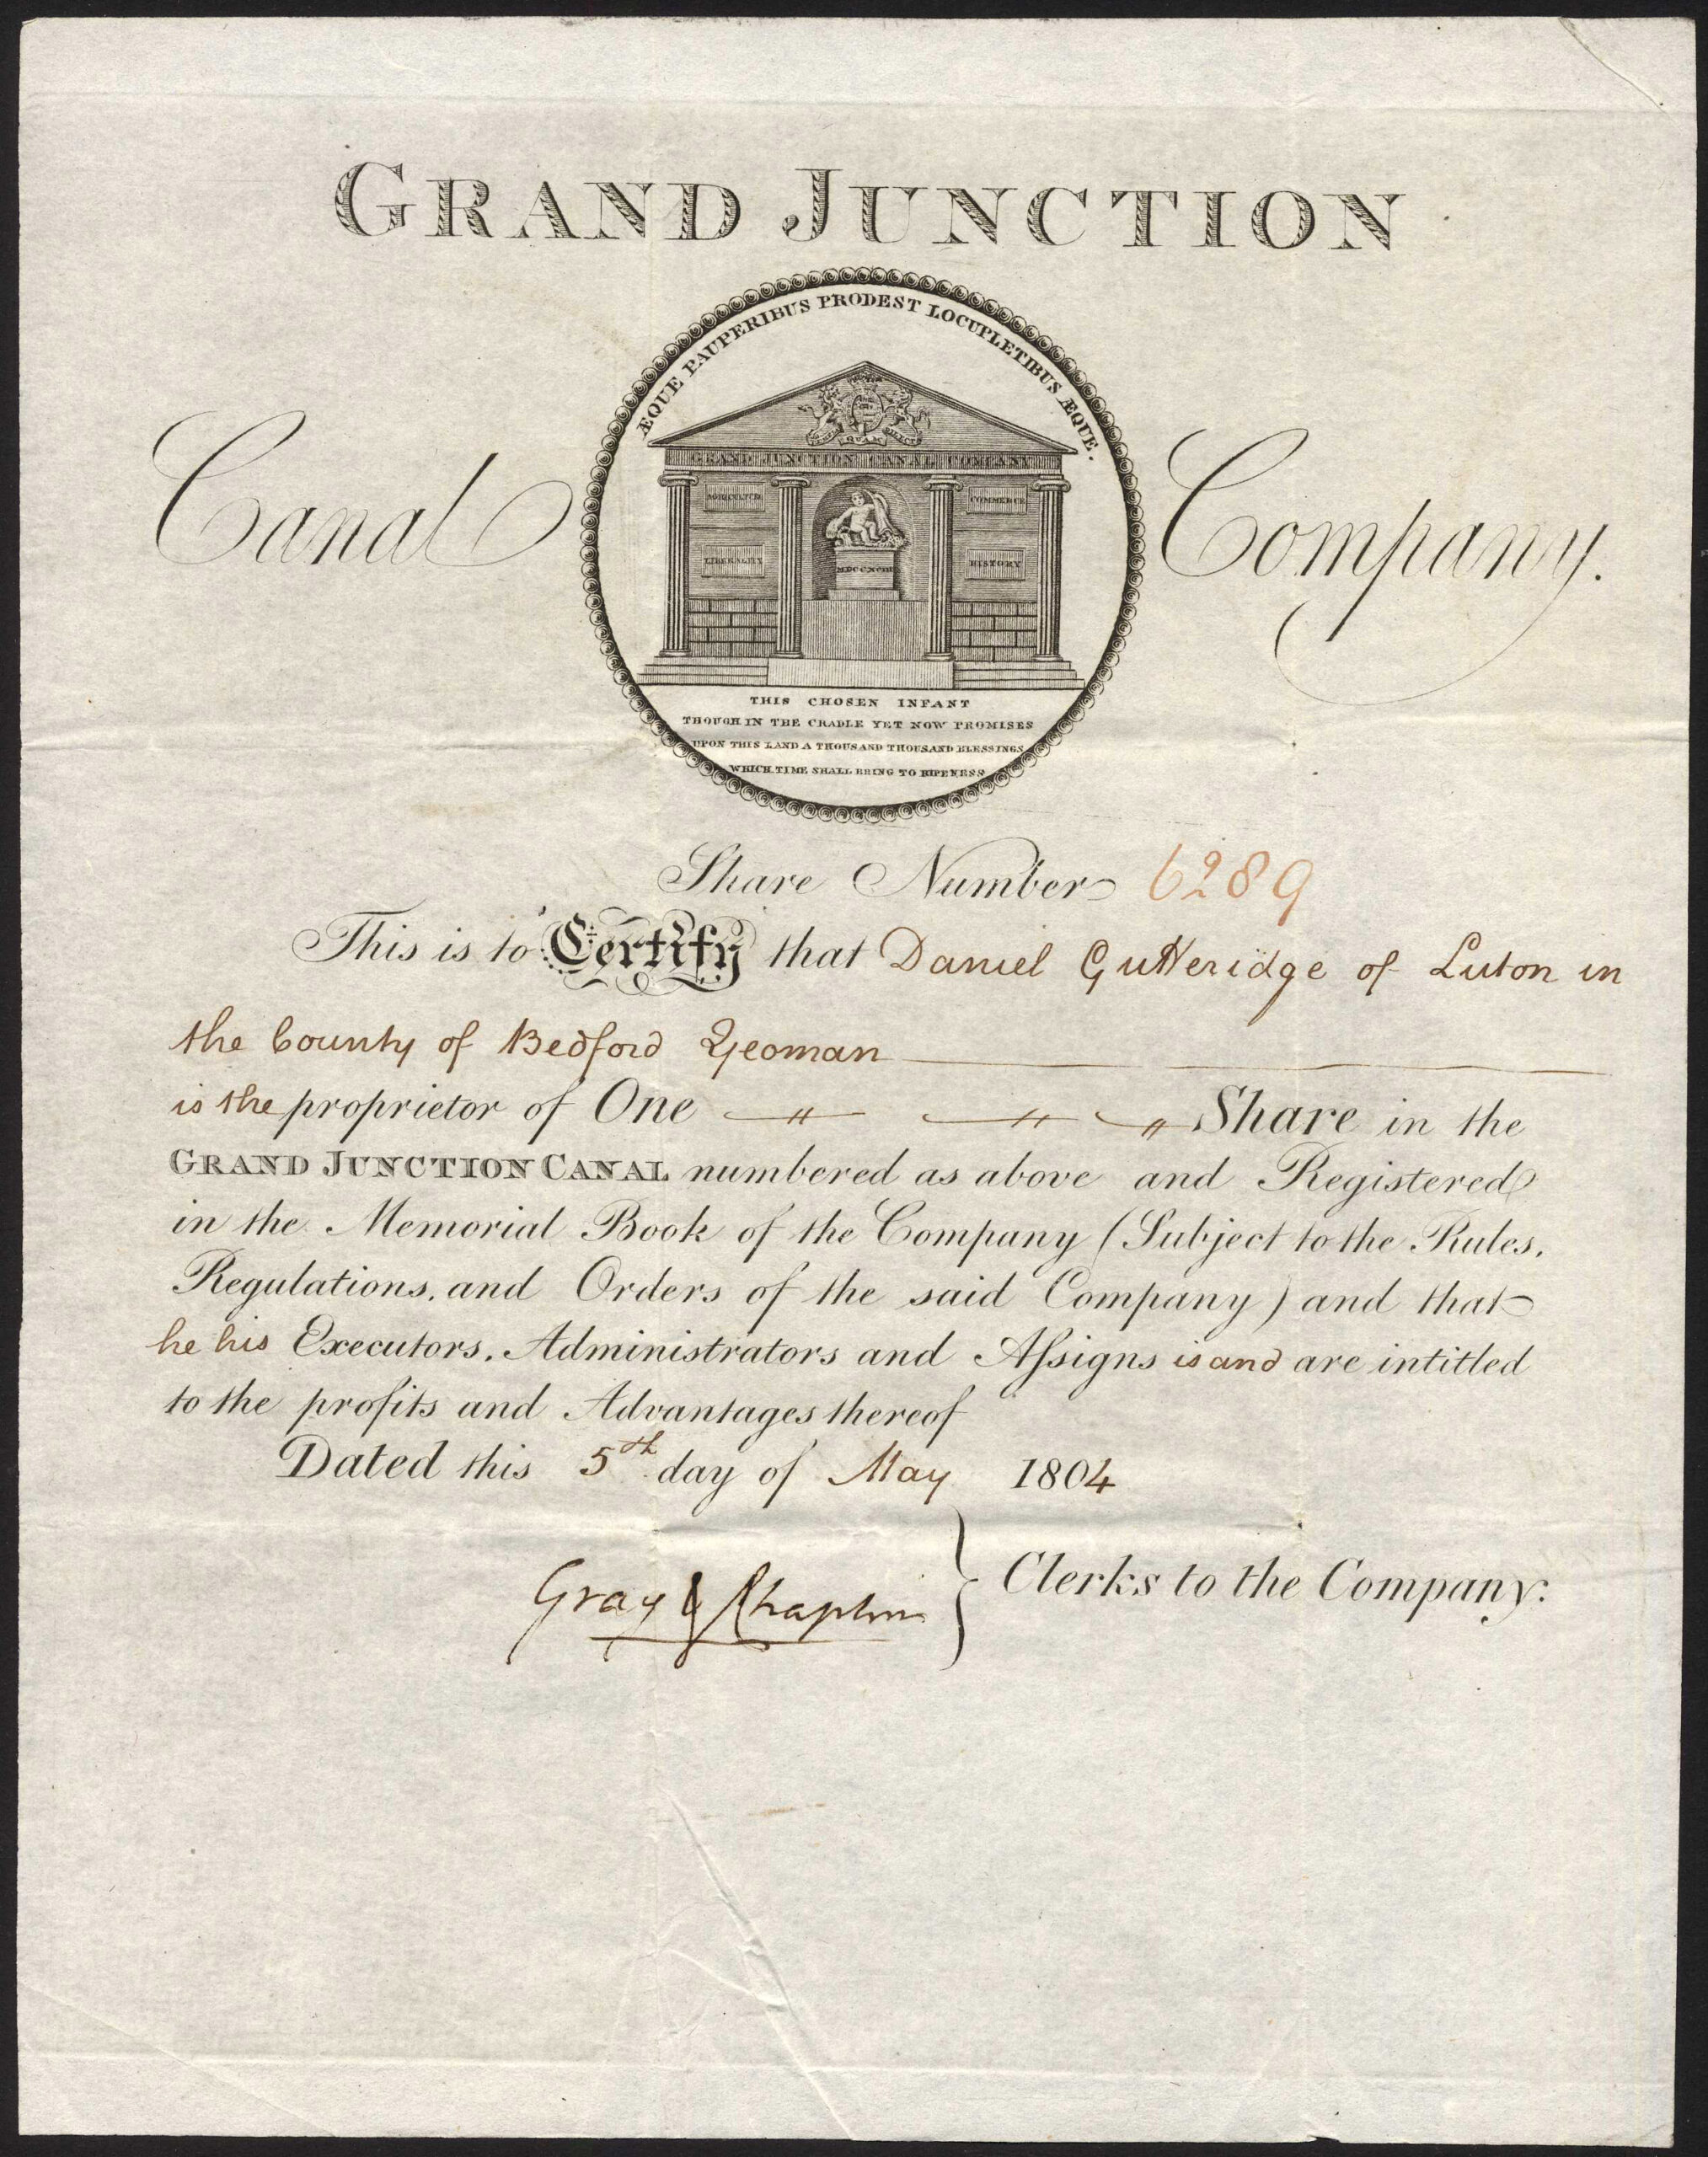 GRAND JUNCTION
Canal Company.
ÆQUE PAUPERIBUS PRODEST LOCUPLETIBUS ÆQUE.
GRAND JUNCTION CANAL COMPANY
AGRICULTURE
COMMERCE
LIBERALITY
MDCCXCIII
HISTORY
THIS CHOSEN INFANT
THOUGH IN THE CRADLE YET NOW PROMISES
UPON THIS LAND A THOUSAND THOUSAND BLESSINGS
WHICH TIME SHALL BRING TO RIPENESS
Share Number 6289
This is to Certify that Daniel Gutteridge of Luton in
the County of Bedford Yeoman
is the proprietor of One Share in the
GRAND JUNCTION CANAL numbered as above and Registered
in the Memorial Book of the Company (Subject to the Rules,
Regulations, and Orders of the said Company) and that
he his Executors, Administrators and Aſsigns is and are intitled
to the profits and Advantages thereof
Dated this 5th day of May 1804
Gray & Chaplin } Clerks to the Company.